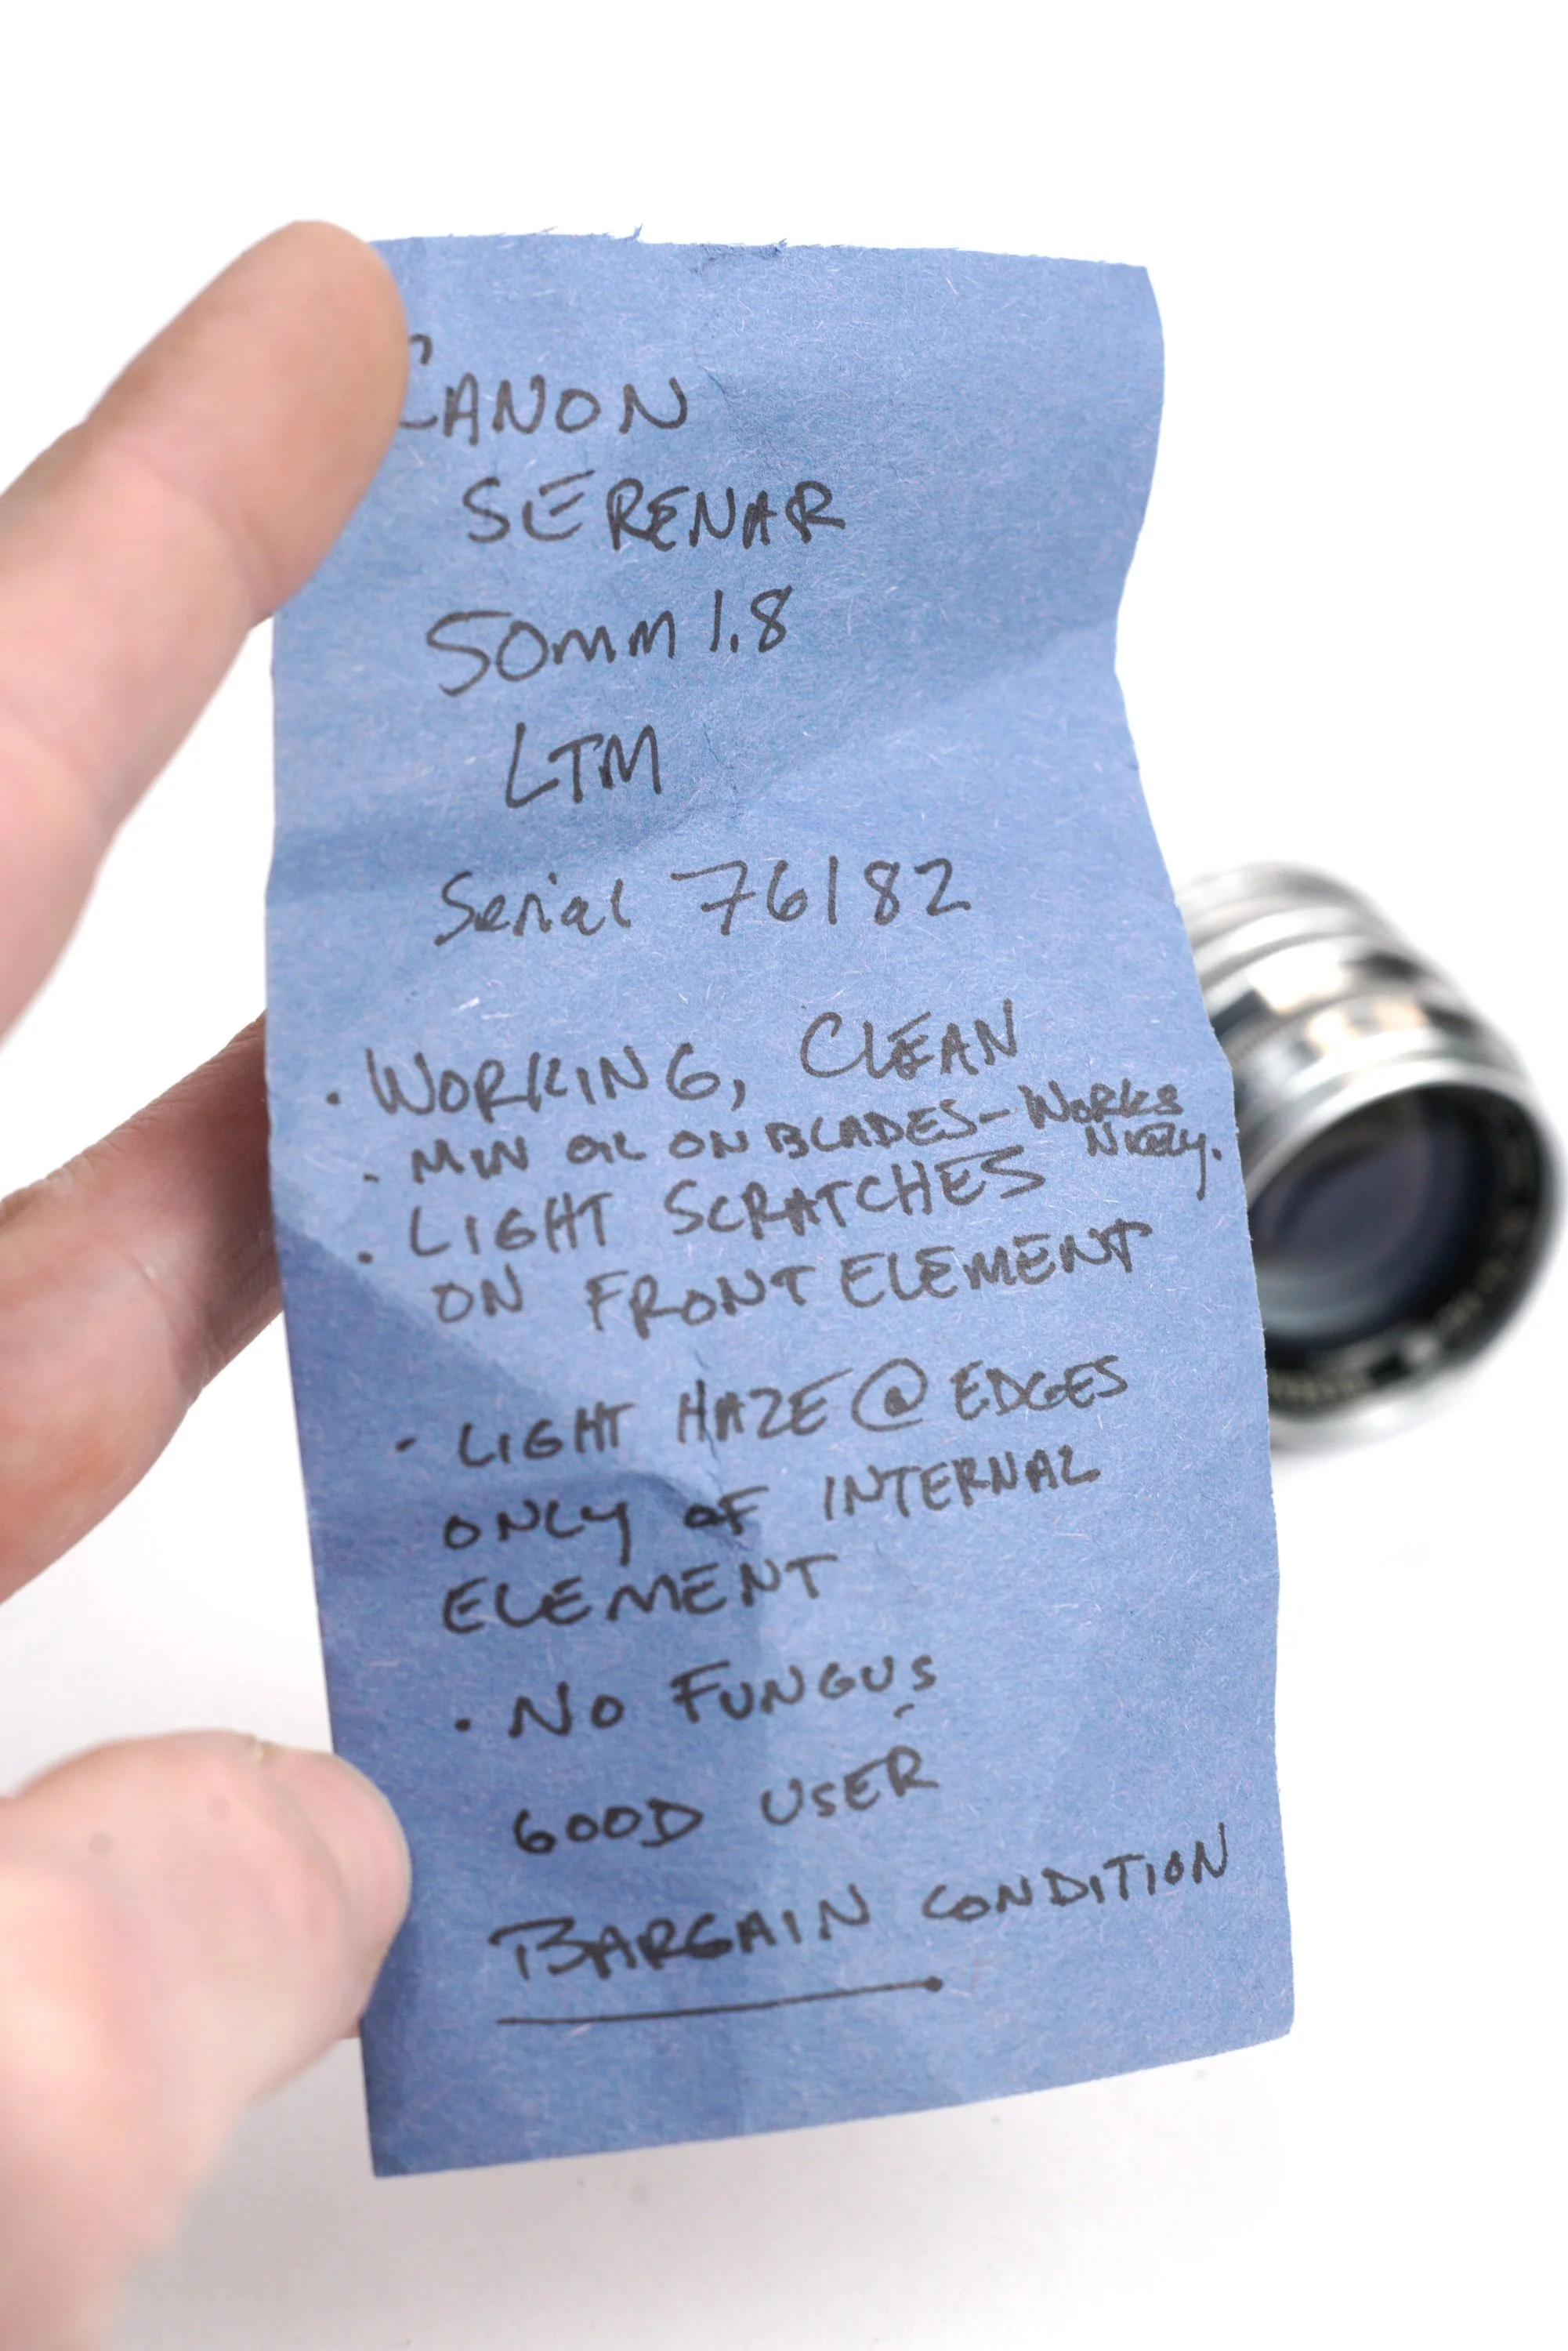 CANON
SERENAR
50mm 1.8
LTM
Serial 76182
· WORKING, CLEAN
· MIN OIL ON BLADES – WORKS
NICELY.
· LIGHT SCRATCHES
ON FRONT ELEMENT
- LIGHT HAZE @ EDGES
ONLY OF INTERNAL
ELEMENT
· NO FUNGUS
GOOD USER
BARGAIN CONDITION